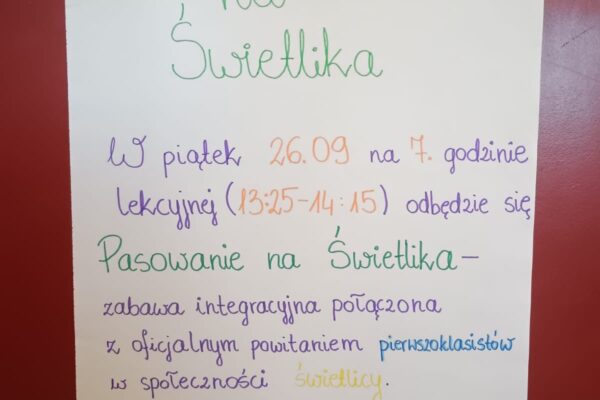 na
Świetlika
W piątek 26.09 na 7. godzinie
lekcyjnej (13:25-14:15) odbędzie się
Pasowanie na Świetlika-
zabawa integracyjna połączona
z oficjalnym powitaniem pierwszoklasistów
w społeczności świetlicy.